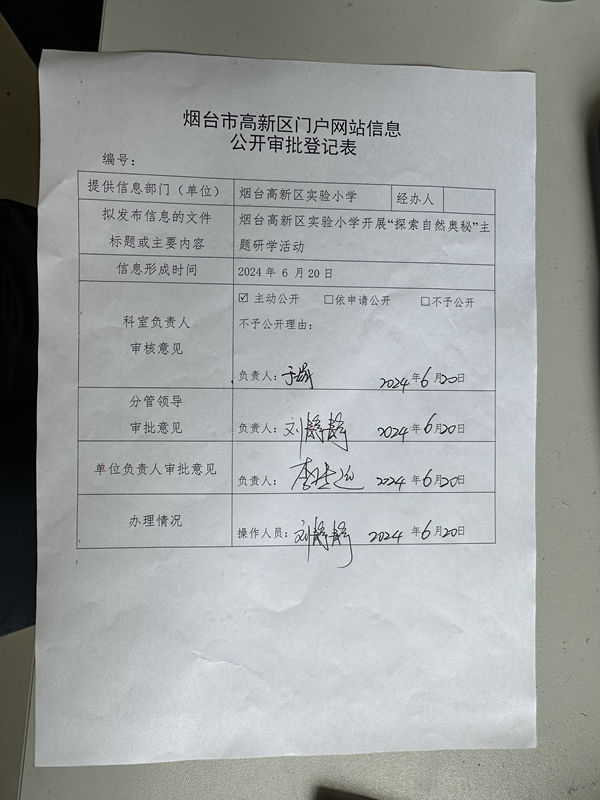 烟台市高新区门户网站信息
公开审批登记表
编号：
提供信息部门（单位） 烟台高新区实验小学 经办人
拟发布信息的文件
标题或主要内容
烟台高新区实验小学开展“探索自然奥秘”主
题研学活动
信息形成时间 2024 年 6 月 20 日
科室负责人
审核意见
☑ 主动公开 □依申请公开 □不予公开
不予公开理由：
负责人： 2024 年 6 月 20 日
分管领导
审批意见
负责人：刘静静 2024 年 6 月 20 日
单位负责人审批意见 负责人： 2024 年 6 月 20 日
办理情况
操作人员：刘静静 2024 年 6 月 20 日